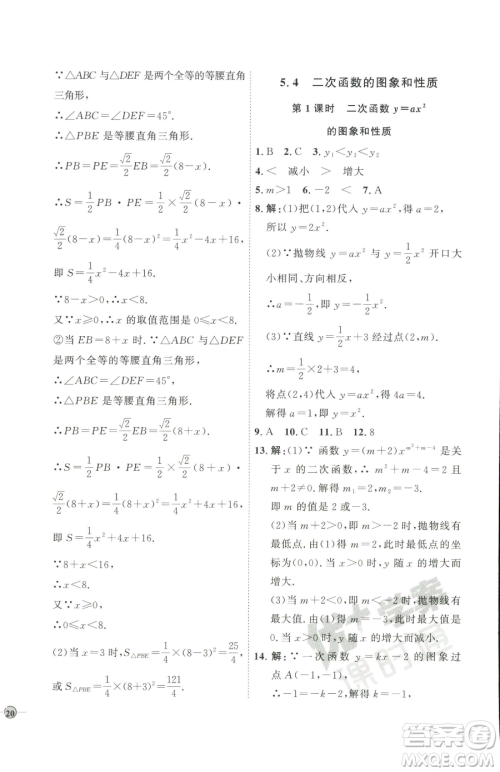 ∵△ABC 与△DEF 是两个全等的等腰直角
三角形,
∴∠ABC=∠DEF=45°.
∴△PBE 是等腰直角三角形.
∴PB=PE=√2/2 EB=√2/2(8-x).
∴S=1/2 PB·PE=1/2×√2/2(8-x)×
√2/2(8-x)=1/4(8-x)²=1/4x²-4x+16.
即 S=1/4x²-4x+16.
∵8-x>0,∴x<8.
又∵x>0,∴x 的取值范围是 0≤x<8.
②当 EB=8+x 时,∵△ABC 与△DEF
是两个全等的等腰直角三角形,
∴∠ABC=∠DEF=45°,
∴△PBE 是等腰直角三角形.
∴PB=PE=√2/2 EB=√2/2(8+x),
∴S=1/2 PB·PE=1/2×√2/2(8+x)×
√2/2(8+x)=1/4(8+x)²=1/4x²+4x+16,
即 S=1/4x²+4x+16.
∵8-x>0,∴x<8.
又∵x≥0,∴x 的取值范围是 0≤x
<8.
(2)当 x=3 时,S△PBE=1/4×(8-3)²=25/4
或 S△PBE=1/4×(8+3)²=121/4.
20
5.4 二次函数的图象和性质
第 1 课时 二次函数 y=ax²
的图象和性质
1. B 2. C 3. y₁<y₃<y₂
4. < 减小 > 增大
5. m>1 6. -2 <7. A
8. 解:(1)把(1,2)代入 y=ax²,得
a=2.
(2)∵抛物线 y=ax² 与 y=1/2x² 开口大
小相同、方向相反,
∴a=-1/2.
(3)∵直线 y=1/2x+3 经过点(2,m),
∴m=1/2×2+3=4.
将点(2,4)代入 y=ax²,得 4a=4.
∴a=1.
9. A 10. C 11. B 12. 8
13. 解:(1)∵函数 y=(m+2)x^(m²+m-4) 是关
于 x 的二次函数,∴m²+m-4=2 且
m+2≠0.解得 m₁=2,m₂=-3.
即 m 的值为 2 或 -3.
(2)当 m+2>0 时,抛物线有
最低点.∴m=2.此时最低点为
(0,0).当 x>0 时,y 随 x 的增大而
增大.
(3)当 m+2<0 时,函数有
最大值.∴m=-3.最大值为 0.当
x>0 时,y 随 x 的增大而减小.
14. 解:∵一次函数 y=kx-2 的图象过点
A(-1,-1),
∴-1=-k-2.解得 k=-1.